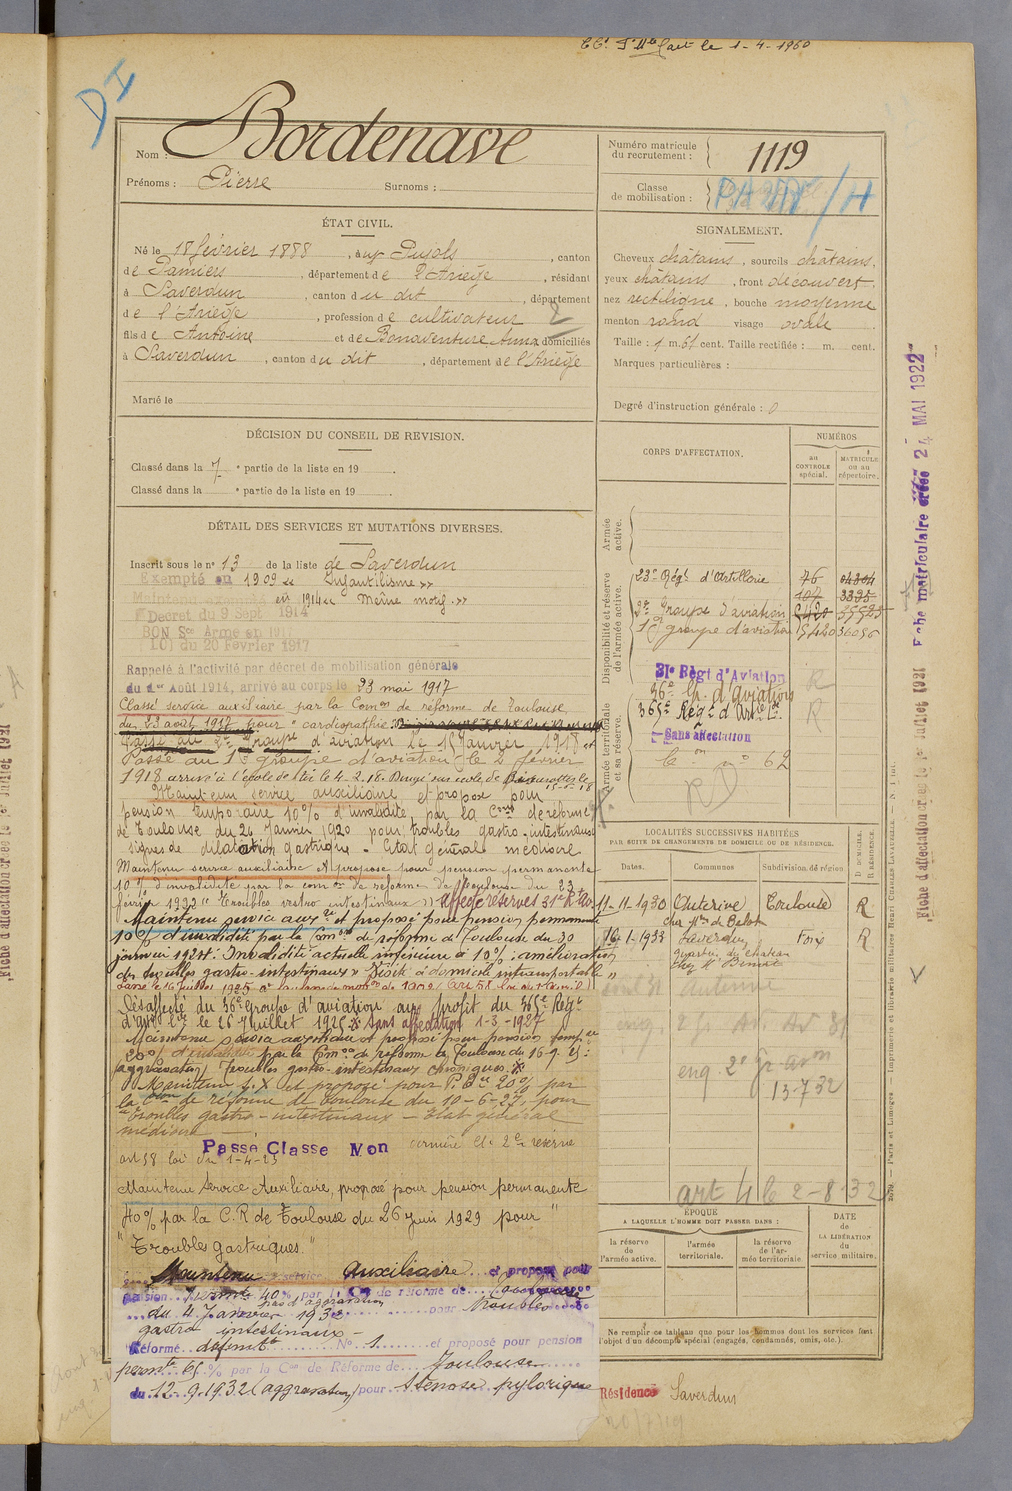 fait le 1-4-1960
DI
Nom : Bordenave
Prénoms : Pierre Surnoms :
Numéro matricule du recrutement : 1119
Classe de mobilisation :
ÉTAT CIVIL.
Né le 18 février 1888, aux Pujols, canton
de Pamiers, département de l'Ariège, résidant
à Saverdun, canton du dit, département
de l'Ariège, profession de cultivateur 2
fils de Antoine et de Bonaventure Anna domiciliés
à Saverdun, canton du dit, département de l'Ariège
Marié le
SIGNALEMENT.
Cheveux châtains, sourcils châtains,
yeux châtains, front découvert,
nez rectiligne, bouche moyenne
menton rond visage ovale
Taille : 1 m. 61 cent. Taille rectifiée : m. cent.
Marques particulières :
Degré d'instruction générale : 0
DÉCISION DU CONSEIL DE REVISION.
Classé dans la 7e partie de la liste en 19
Classé dans la e partie de la liste en 19
DÉTAIL DES SERVICES ET MUTATIONS DIVERSES.
Inscrit sous le n° 13 de la liste de Saverdun
Exempté en 1909 Infantilisme »
Maintenu en 1914 Même motif. »
Décret du 9 Sept 1914
BON Sce Armé en 1917
LOI du 20 Février 1917
Rappelé à l'activité par décret de mobilisation générale
du 1er Août 1914, arrivé au corps le 23 mai 1917
Classé service auxiliaire par la Comon de réforme de Toulouse
du 23 août 1917 pour "cardiopathie
Passé au 2e Groupe d'aviation le 15 Janvier 1918 et
Passé au 1er groupe d'aviation le 2 février
1918 arrivé à l'école de le 4-2-18.
Maintenu service auxiliaire et proposé pour
pension temporaire 10% d'invalidité par la Cion de réforme
de Toulouse du 26 Janvier 1920 pour troubles gastro-intestinaux
signes de dilatation gastrique - Etat général médiocre
Maintenu service auxiliaire et proposé pour pension permanente
10% d'invalidité par la comon de réforme de Toulouse du 23
février 1922 "Troubles gastro intestinaux »
Maintenu service auxre et proposé pour pension permanente
10% d'invalidité par la Comon de réforme de Toulouse du 30
janvier 1924: Invalidité actuelle inférieure à 10%: amélioration
des troubles gastro-intestinaux »
Désaffecté du 36e Groupe d'aviation au profit du 365e Regt
d'Artie le 26 Juillet 1925 Sans affectation 1-3-1927
Maintenu service auxiliaire et proposé pour pension tempre
20% d'invalidité par la Comon de réforme de Toulouse du 16-9-25:
(aggravation) Troubles gastro-intestinaux chroniques.
Maintenu S.X et proposé pour P. 20% par
la Cion de réforme de Toulouse du 10-6-27, pour
"Troubles gastro-intestinaux - Etat général
médiocre
Passé Classe Mon dernière de 2e réserve
art 58 loi du 1-4-23
Maintenu Service Auxiliaire, proposé pour pension permanente
40% par la C.R de Toulouse du 26 juin 1929 pour "
"Troubles gastriques."
Maintenu service Auxiliaire et proposé pour
pension permte 40% par la Con de réforme de Toulouse
du 4 Janvier 1932 pour Troubles
gastro intestinaux -
Réformé définitt N° 1 et proposé pour pension
permte 65% par la Con de Réforme de Toulouse
du 12-9-1932 (aggravation) pour Sténose pylorique
CORPS D'AFFECTATION.
NUMÉROS
au CONTROLE spécial.
MATRICULE ou au répertoire.
Armée active.
Disponibilité et réserve de l'armée active.
23e Régt d'Artillerie 76 04304
107 3395
2e Groupe d'aviation 2420 35523
1er groupe d'aviation 5420 36056
31e Regt d'Aviation R
36e Gr. d'aviation
Armée territoriale et sa réserve.
365e Régt d'Artie R
Sans affectation
62
LOCALITÉS SUCCESSIVES HABITÉES
PAR SUITE DE CHANGEMENTS DE DOMICILE OU DE RÉSIDENCE.
Dates. Communes Subdivision de région D DOMICILE. R RÉSIDENCE.
11-11-1930 Auterive Toulouse R
16-1-1933 Saverdun Foix R
quartier du château
eng. 2e Gr. Avon
13-7-32
art 4 le 2-8-32
ÉPOQUE
A LAQUELLE L'HOMME DOIT PASSER DANS :
la réserve de l'armée active.
l'armée territoriale.
la réserve de l'armée territoriale
DATE de LA LIBÉRATION du service militaire.
Ne remplir ce tableau que pour les hommes dont les services font
l'objet d'un décompte spécial (engagés, condamnés, omis, etc.).
Résidence Saverdun
Fiche matriculaire créée 24 MAI 1922
Fiche d'affectation créée le 1er Juillet 1921
Paris et Limoges — Imprimerie et librairie militaires Henri CHARLES-LAVAUZELLE.